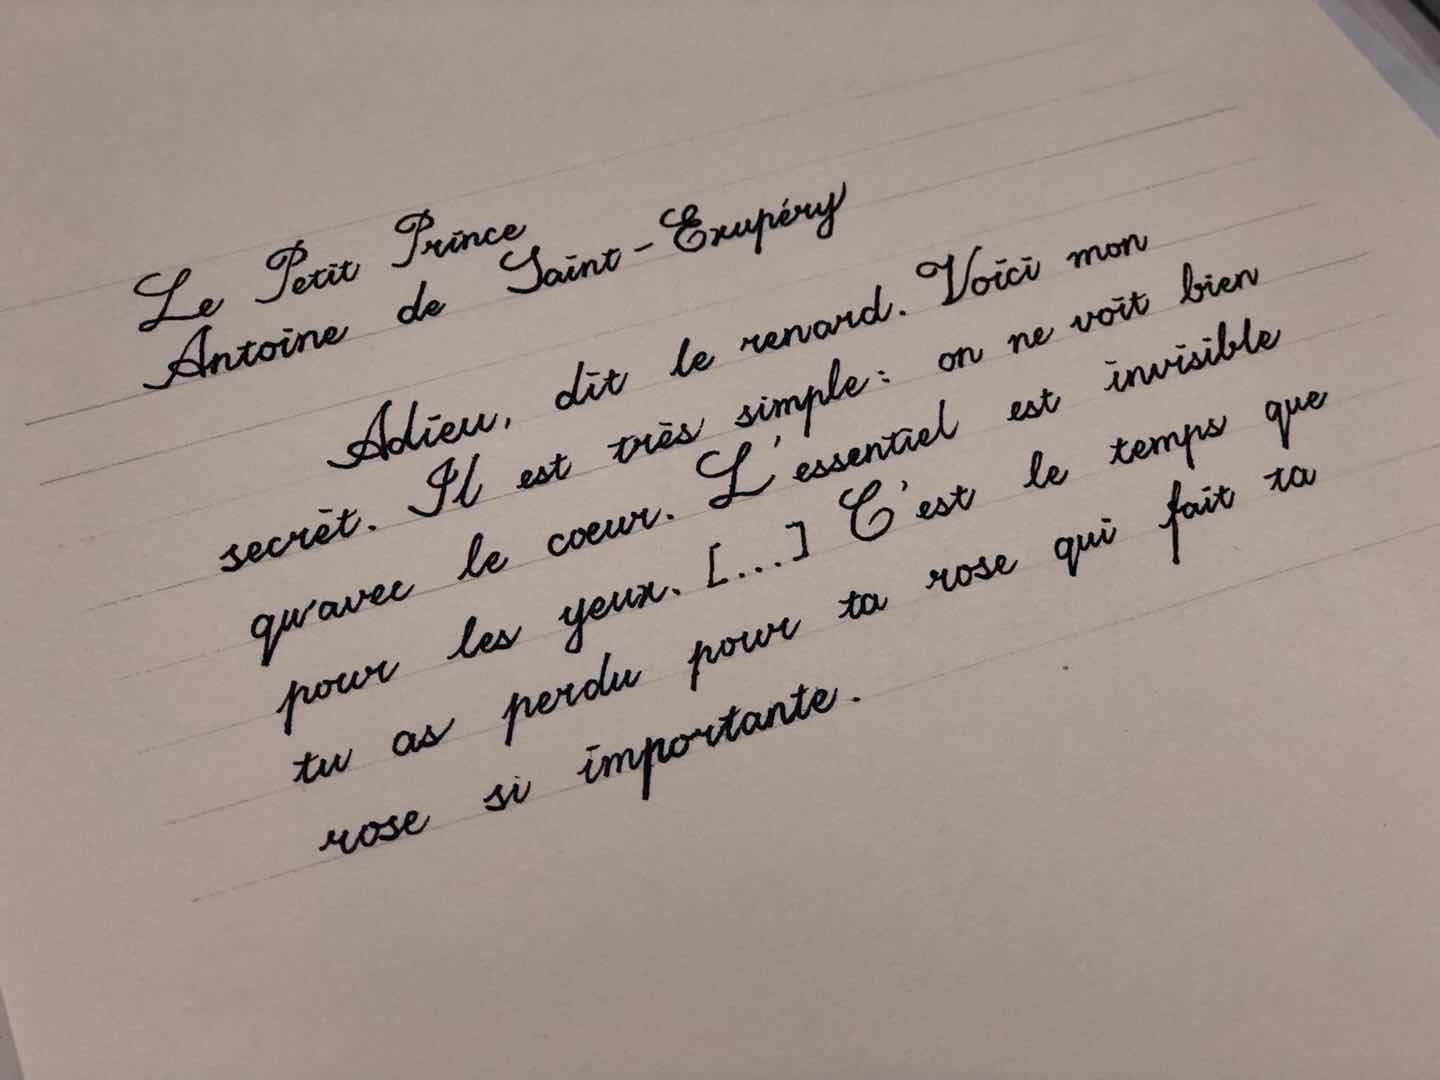 Le Petit Prince
Antoine de Saint-Exupéry
Adieu, dit le renard. Voici mon
secrèt. Il est très simple: on ne voit bien
qu'avec le coeur. L'essentiel est invisible
pour les yeux. [...] C'est le temps que
tu as perdu pour ta rose qui fait ta
rose si importante.